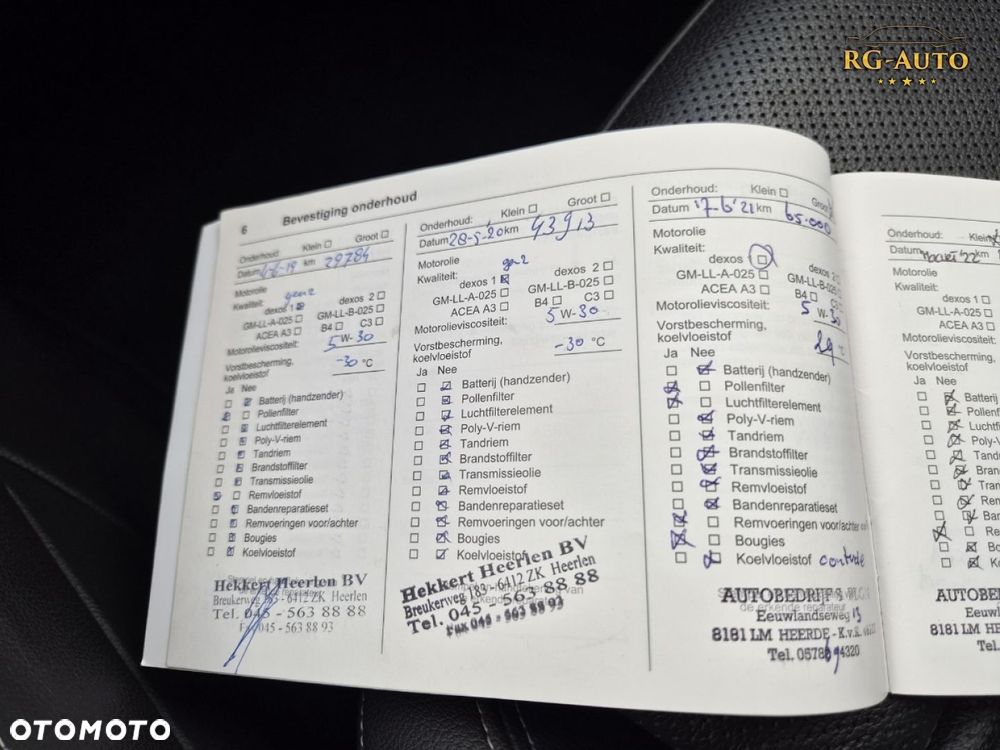 RG-AUTO
6 Bevestiging onderhoud
Onderhoud: Klein Groot
Datum km 29784
Motorolie
Kwaliteit: gen2
dexos 1 dexos 2
GM-LL-A-025 GM-LL-B-025
ACEA A3 B4 C3
Motorolieviscositeit: 5 W-30
Vorstbescherming,
koelvloeistof -30 °C
Ja Nee
Batterij (handzender)
Pollenfilter
Luchtfilterelement
Poly-V-riem
Tandriem
Brandstoffilter
Transmissieolie
Remvloeistof
Bandenreparatieset
Remvoeringen voor/achter
Bougies
Koelvloeistof
Hekkert Heerlen BV
Breukerweg 183 - 6412 ZK Heerlen
Tel. 045 - 563 88 88
Fax 045 - 563 88 93
Onderhoud: Klein Groot
Datum 28-5-20 km 43913
Motorolie
Kwaliteit: gen2
dexos 1 dexos 2
GM-LL-A-025 GM-LL-B-025
ACEA A3 B4 C3
Motorolieviscositeit: 5 W-30
Vorstbescherming,
koelvloeistof -30 °C
Ja Nee
Batterij (handzender)
Pollenfilter
Luchtfilterelement
Poly-V-riem
Tandriem
Brandstoffilter
Transmissieolie
Remvloeistof
Bandenreparatieset
Remvoeringen voor/achter
Bougies
Koelvloeistof
Hekkert Heerlen BV
Breukerweg 183 - 6412 ZK Heerlen
Tel. 045 - 563 88 88
Fax 045 - 563 88 93
Onderhoud: Klein Groot
Datum 17-6-'21 km 65.000
Motorolie
Kwaliteit:
dexos dexos 2
GM-LL-A-025 GM-LL-B-025
ACEA A3 B4 C3
Motorolieviscositeit: 5 W-30
Vorstbescherming,
koelvloeistof
Ja Nee
Batterij (handzender)
Pollenfilter
Luchtfilterelement
Poly-V-riem
Tandriem
Brandstoffilter
Transmissieolie
Remvloeistof
Bandenreparatieset
Remvoeringen voor/achter
Bougies
Koelvloeistof controle
de erkende reparateur
AUTOBEDRIJF
Eeuwlandseweg 13
8181 LM HEERDE - K.v.K.
Tel. 0578
Onderhoud: Klein
Datum '22 km
Motorolie
Kwaliteit:
dexos 1
GM-LL-A-025
ACEA A3
Motorolieviscositeit:
Vorstbescherming,
koelvloeistof
Ja Nee
AUTOBE
Eeu
8181 LM HE
Tel.
OTOMOTO